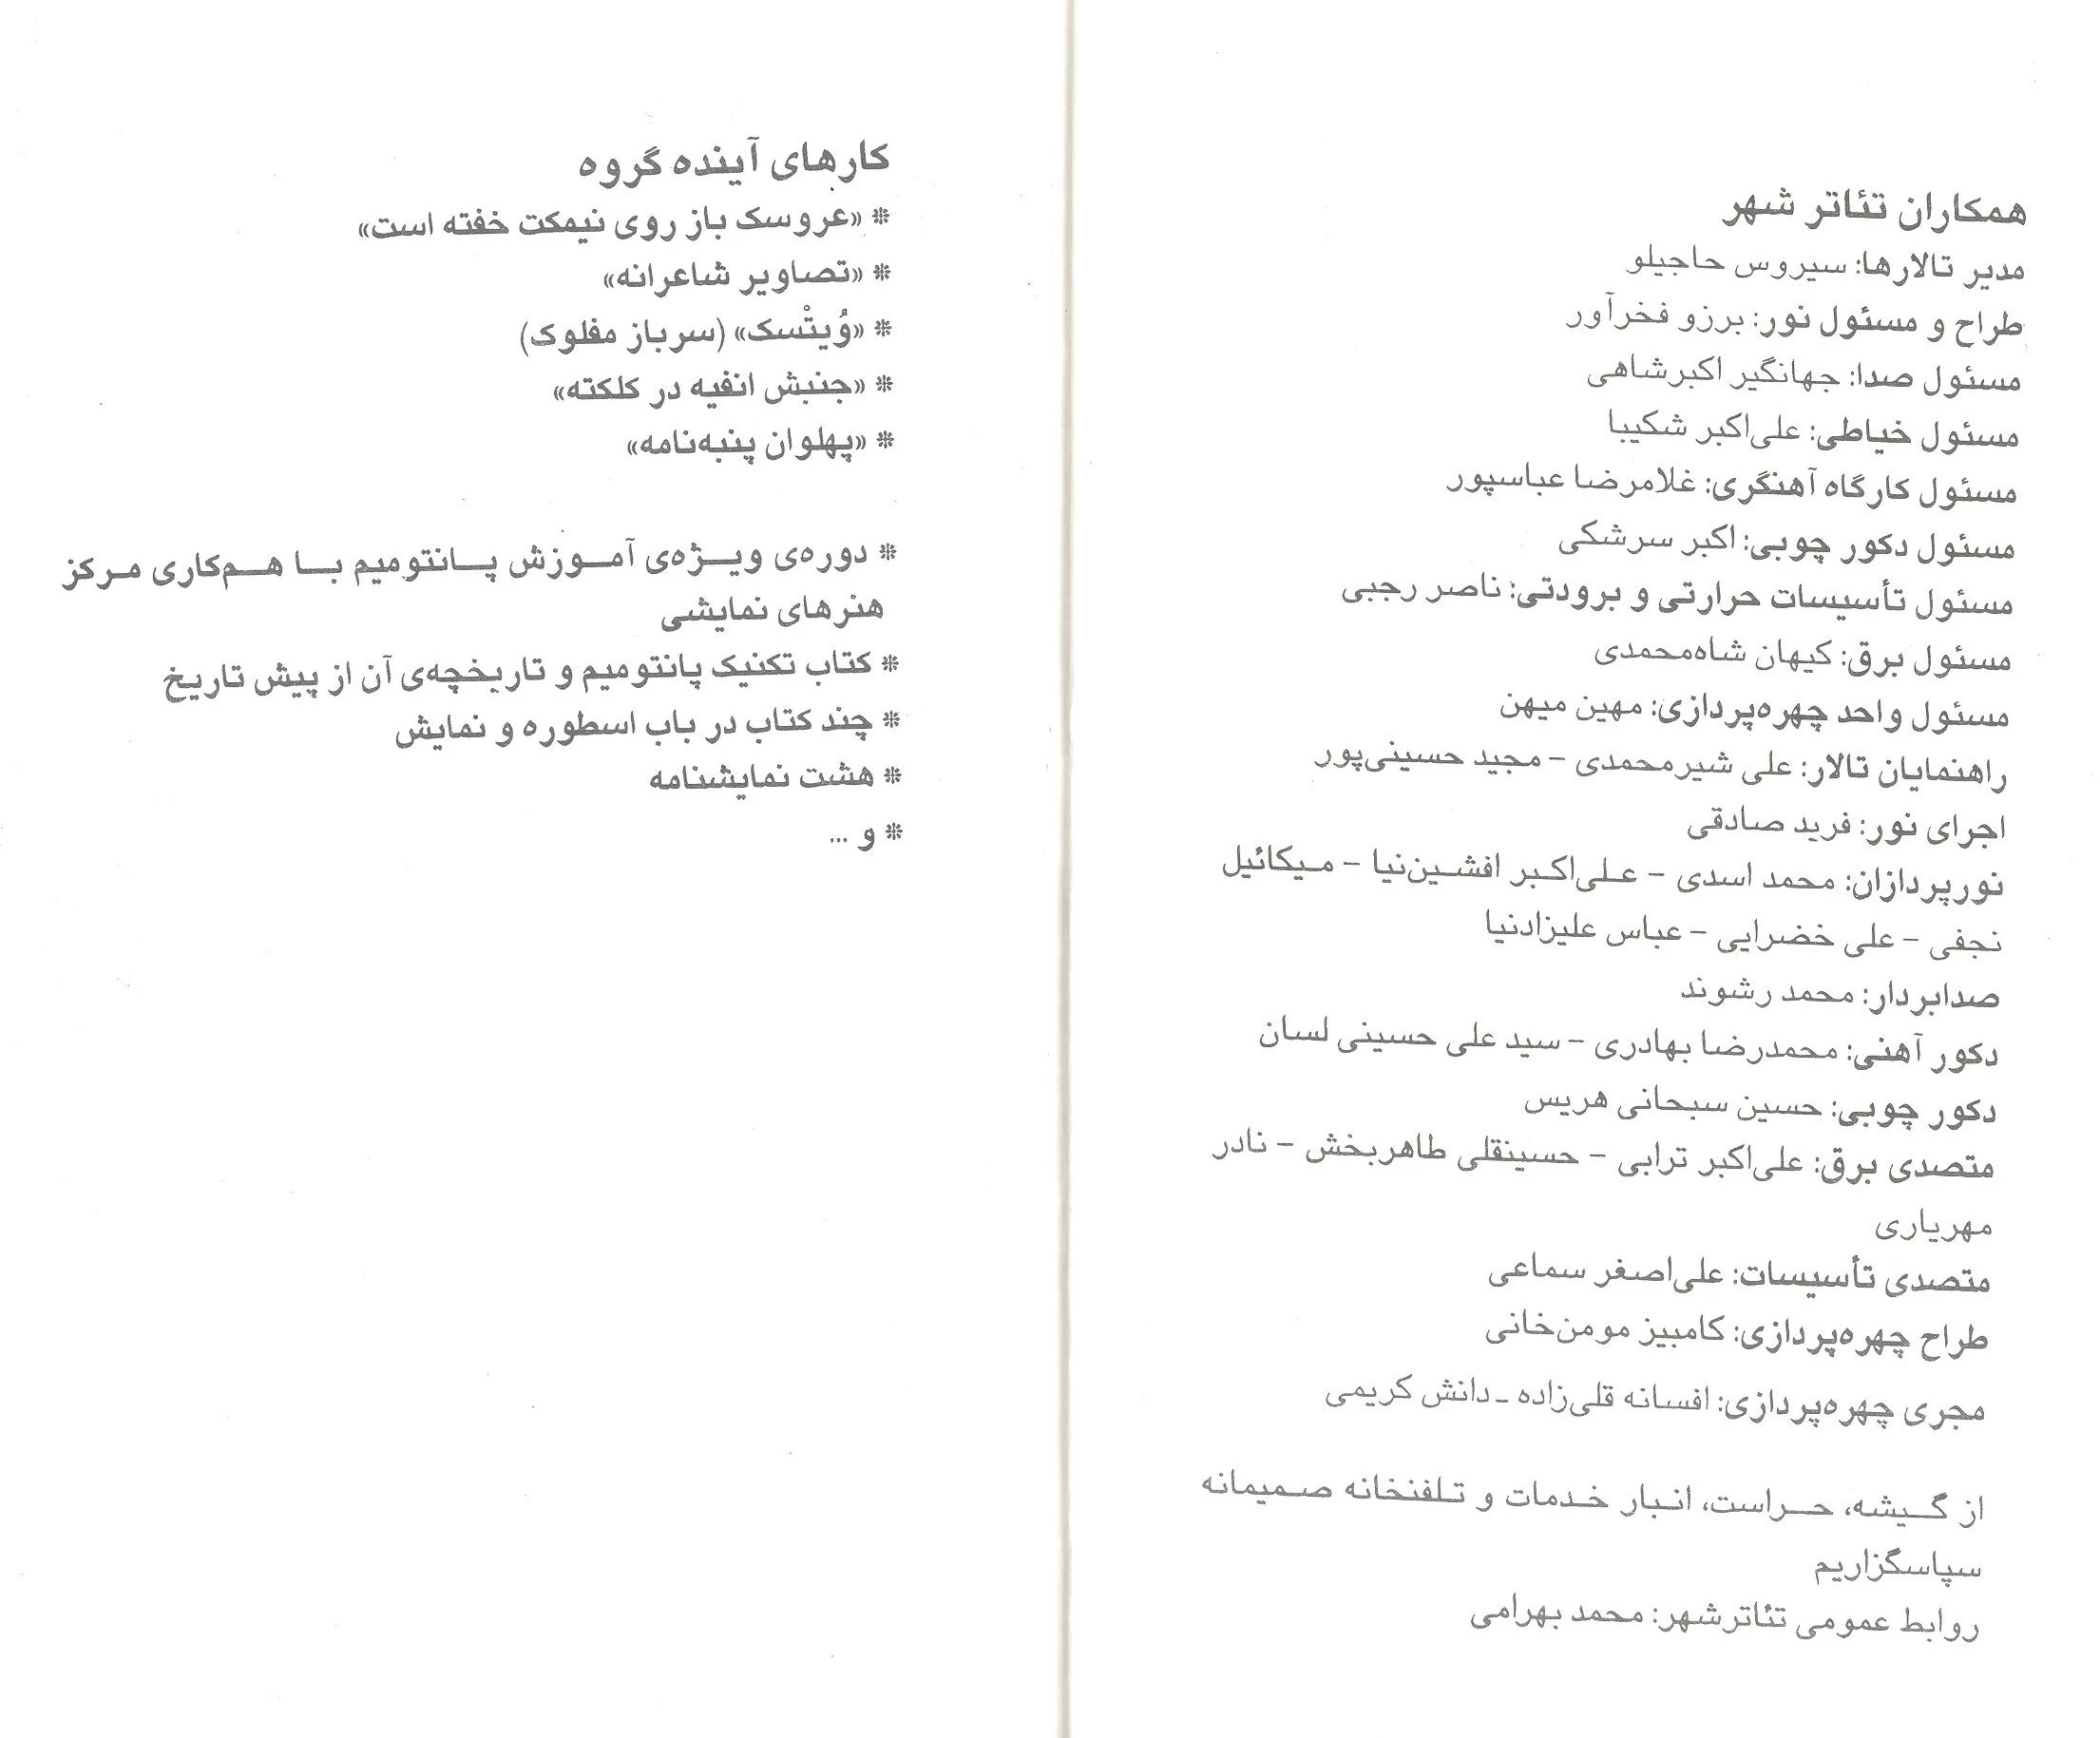 همکاران تئاتر شهر
مدیر تالارها: سیروس حاجیلو
طراح و مسئول نور: برزو فخرآور
مسئول صدا: جهانگیر اکبرشاهی
مسئول خیاطی: علی‌اکبر شکیبا
مسئول کارگاه آهنگری: غلامرضا عباسپور
مسئول دکور چوبی: اکبر سرشکی
مسئول تأسیسات حرارتی و برودتی: ناصر رجبی
مسئول برق: کیهان شاه‌محمدی
مسئول واحد چهره‌پردازی: مهین میهن
راهنمایان تالار: علی شیرمحمدی – مجید حسینی‌پور
اجرای نور: فرید صادقی
نورپردازان: محمد اسدی – علی‌اکبر افشین‌نیا – میکائیل
نجفی – علی خضرایی – عباس علیزادنیا
صدابردار: محمد رشوند
دکور آهنی: محمدرضا بهادری – سید علی حسینی لسان
دکور چوبی: حسین سبحانی هریس
متصدی برق: علی‌اکبر ترابی – حسینقلی طاهربخش – نادر
مهریاری
متصدی تأسیسات: علی‌اصغر سماعی
طراح چهره‌پردازی: کامبیز مومن‌خانی
مجری چهره‌پردازی: افسانه قلی‌زاده ـ دانش کریمی
از گیشه، حراست، انبار خدمات و تلفنخانه صمیمانه
سپاسگزاریم
روابط عمومی تئاترشهر: محمد بهرامی
کارهای آینده گروه
* «عروسک باز روی نیمکت خفته است»
* «تصاویر شاعرانه»
* «وُیتْسک» (سرباز مفلوک)
* «جنبش انفیه در کلکته»
* «پهلوان پنبه‌نامه»
* دوره‌ی ویژه‌ی آموزش پانتومیم با هم‌کاری مرکز
هنرهای نمایشی
* کتاب تکنیک پانتومیم و تاریخچه‌ی آن از پیش تاریخ
* چند کتاب در باب اسطوره و نمایش
* هشت نمایشنامه
* و ...